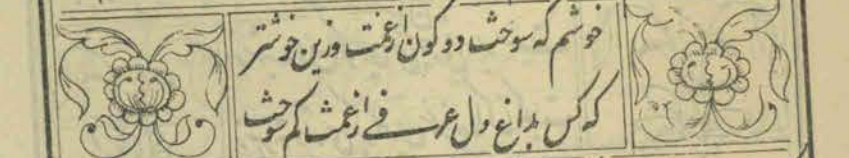 خوشم که سوخت دو کون از غمت وزین خوشتر
که کس بداغ دل عرفے ز غمت کم سوخت